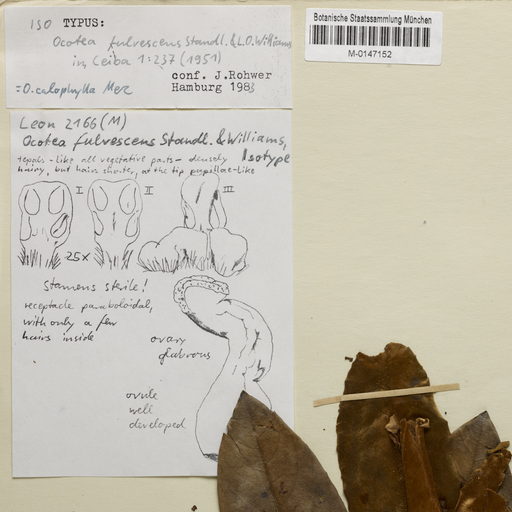 ISO TYPUS:
Ocotea fulvescens Standl. & L.O. Williams
in Ceiba 1:237 (1951)
conf. J.Rohwer
= O. calophylla Mez
Hamburg 1983
Botanische Staatssammlung München
M-0147152
Leon 2166 (M)
Ocotea fulvescens Standl. & Williams,
Isotype
tepals - like all vegetative parts - densely
hairy, but hairs shorter, at the tip papillae-like
I II III
25x
Stamens sterile!
receptacle paraboloidal,
with only a few
hairs inside
ovary
glabrous
ovule
well
developed